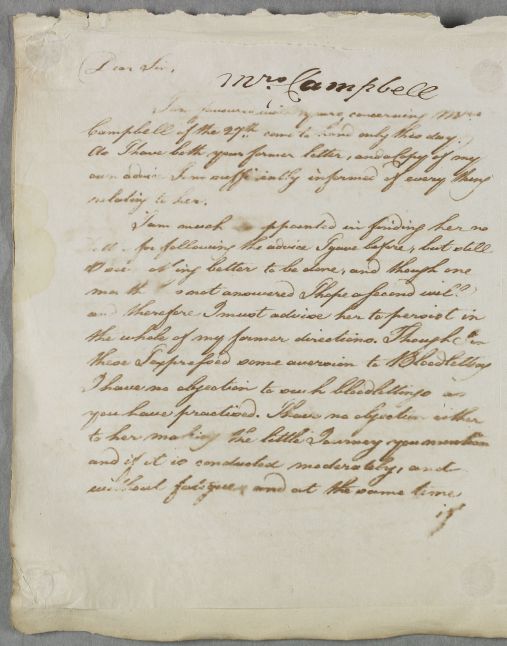 Dear Sir,
Mrs. Campbell
I am favoured with yours concerning Mrs.
Campbell of the 27th. come to hand only this day.
As I have both your former letter, and a copy of my
own advice I am sufficiently informed of every thing
relating to her.
I am much appointed in finding her no
for following the advice I gave before, but still
better to be done, and though one
not answered I hope a second will
and therefore I must advise her to persist in
the whole of my former directions. Though in
these I expressed some aversion to Bloodletting
I have no objection to such bloodlettings as
you have practised. I have no objection either
to her making the little Journey you mention
and if it is conducted moderately, and
without fatigue, and at the same time,
if